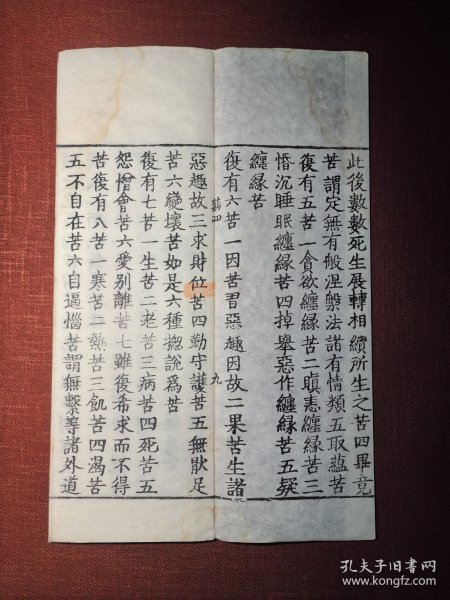 此後數數死生展轉相續所生之苦四畢竟
苦謂定無有般涅槃法諸有情類五取蘊苦
復有五苦一貪欲纏緣苦二瞋恚纏緣苦三
惛沉睡眠纏緣苦四掉舉惡作纏緣苦五疑
纏緣苦
復有六苦一因苦習惡趣因故二果苦生諸
惡趣故三求財位苦四勤守護苦五無猒足
苦六變壞苦如是六種揔說為苦
復有七苦一生苦二老苦三病苦四死苦五
怨憎會苦六愛別離苦七雖復希求而不得
苦復有八苦一寒苦二熱苦三飢苦四渴苦
五不自在苦六自逼惱苦謂無繫等諸外道
九
孔夫子旧书网
www.kongfz.com